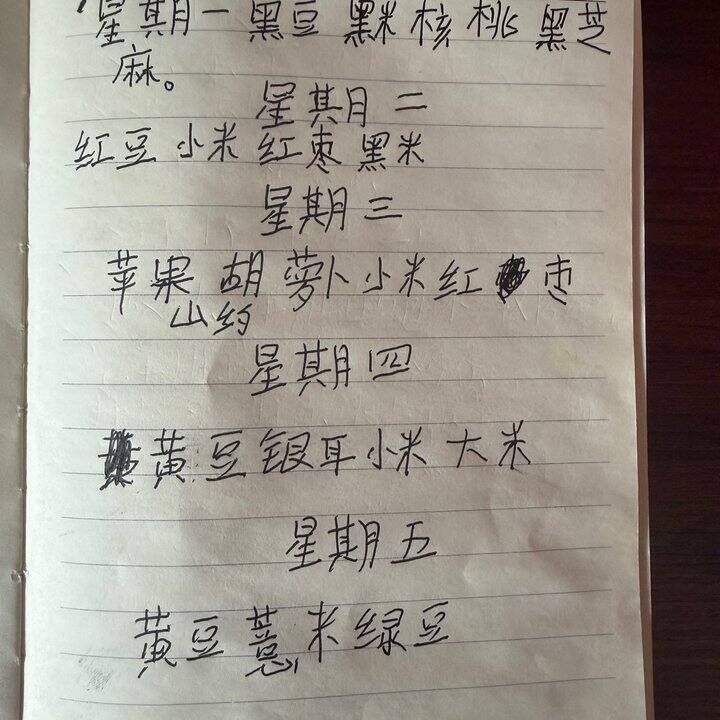 星期一黑豆黑米核桃黑芝
麻。
星期二
红豆小米红枣黑米
星期三
苹果胡萝卜小米红枣
山约
星期四
黄豆银耳小米大米
星期五
黄豆薏米绿豆